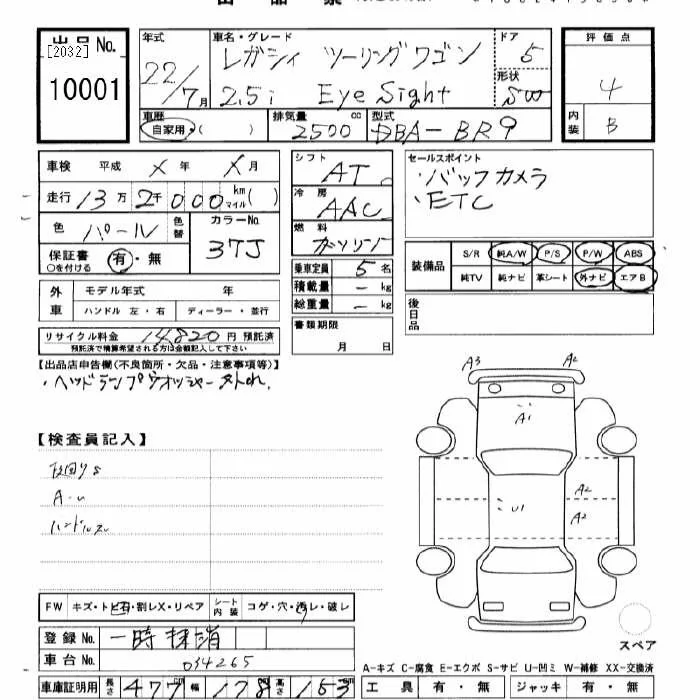 出品No.
[2032]
10001
年式
22/7月
車名・グレード
レガシィ ツーリングワゴン
2.5i EyeSight
ドア
5
形状
SW
評価点
4
内装
B
車歴
自家用・( )
排気量
2500 cc
型式
DBA-BR9
車検 平成 X年 X月
走行 13万2千000 km マイル( )
色 パール 色替
カラーNo.
37J
保証書
○を付ける
有・無
シフト
AT
冷房
AAC
燃料
ガソリン
乗車定員 5名
積載量 ー kg
総重量 ー kg
書類期限
月 日
セールスポイント
・バックカメラ
・ETC
装備品
S/R 純A/W P/S P/W ABS
純TV 純ナビ 革シート 外ナビ エアB
後日品
外車
モデル年式 年
ハンドル 左・右 ディーラー・並行
リサイクル料金 14,820円 預託済
預託済で精算希望される方は金額記入して下さい
【出品店申告欄(不良箇所・欠品・注意事項等)】
・ヘッドランプウオッシャー外れ.
【検査員記入】
A-U
A3
A2
A1
U1
A2
A2
FW キズ・トビ石・割レX・リペア
シート内装 コゲ・穴・汚レ・破レ
登録No. 一時抹消
車台No. 034265
車庫証明用 長さ 477 cm 幅 178 cm 高さ 153 cm
スペア
A-キズ C-腐食 E-エクボ S-サビ U-凹ミ W-補修 XX-交換済
工具 有・無 ジャッキ 有・無